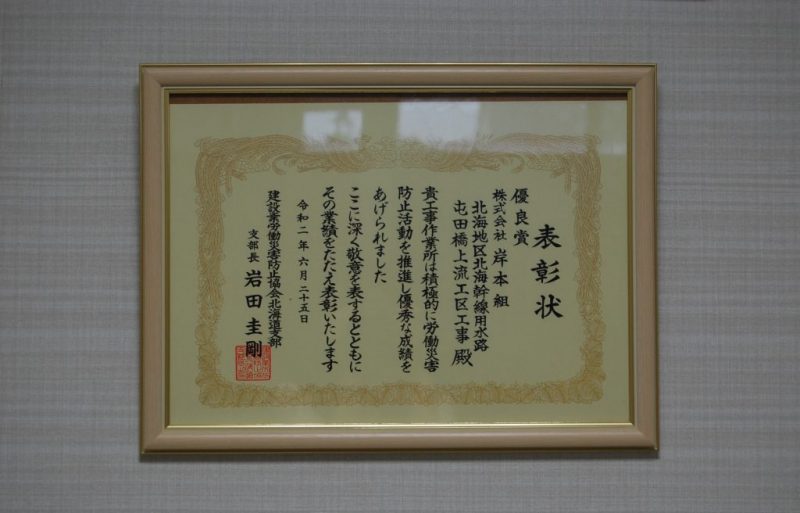 表彰状
優良賞
株式会社 岸本組
北海地区北海幹線用水路
屯田橋上流工区工事 殿
貴工事作業所は積極的に労働災害
防止活動を推進し優秀な成績を
あげられました
ここに深く敬意を表するとともに
その業績をたたえ表彰いたします
令和二年六月二十五日
建設業労働災害防止協会北海道支部
支部長 岩田圭剛